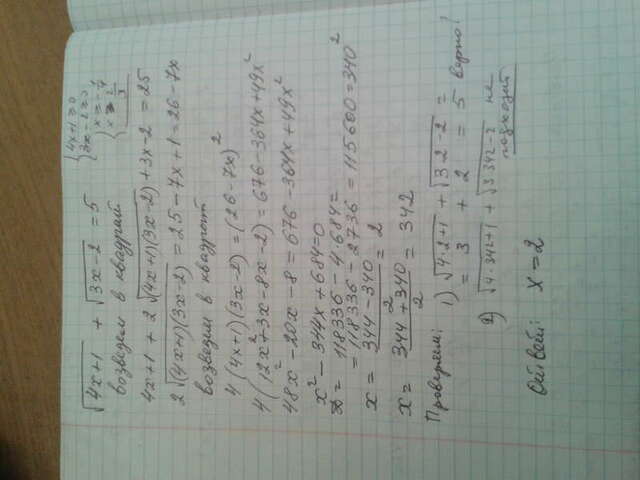 √4x+1 + √3x-2 = 5
{4x+1≥0
3x-2≥0
возведем в квадрат
4x+1+2√(4x+1)(3x-2)+3x-2=25
2√(4x+1)(3x-2) = 25-7x+1=26-7x
возведем в квадрат
4(4x+1)(3x-2)=(26-7x)²
4(12x²+3x-8x-2)=676-364x+49x²
48x²-20x-8=676-364x+49x²
x²-344x+684=0
D= 118336-4·684=
=118336-2736=115600=340²
x= (344-340)/2 = 2
x= (344+340)/2 = 342
Проверяем: 1) √4·2+1 + √3·2-2 =
= 3 + 2 = 5 верно!
2) √4·342+1 + √3·342-2 не подходит
Ответ: x=2